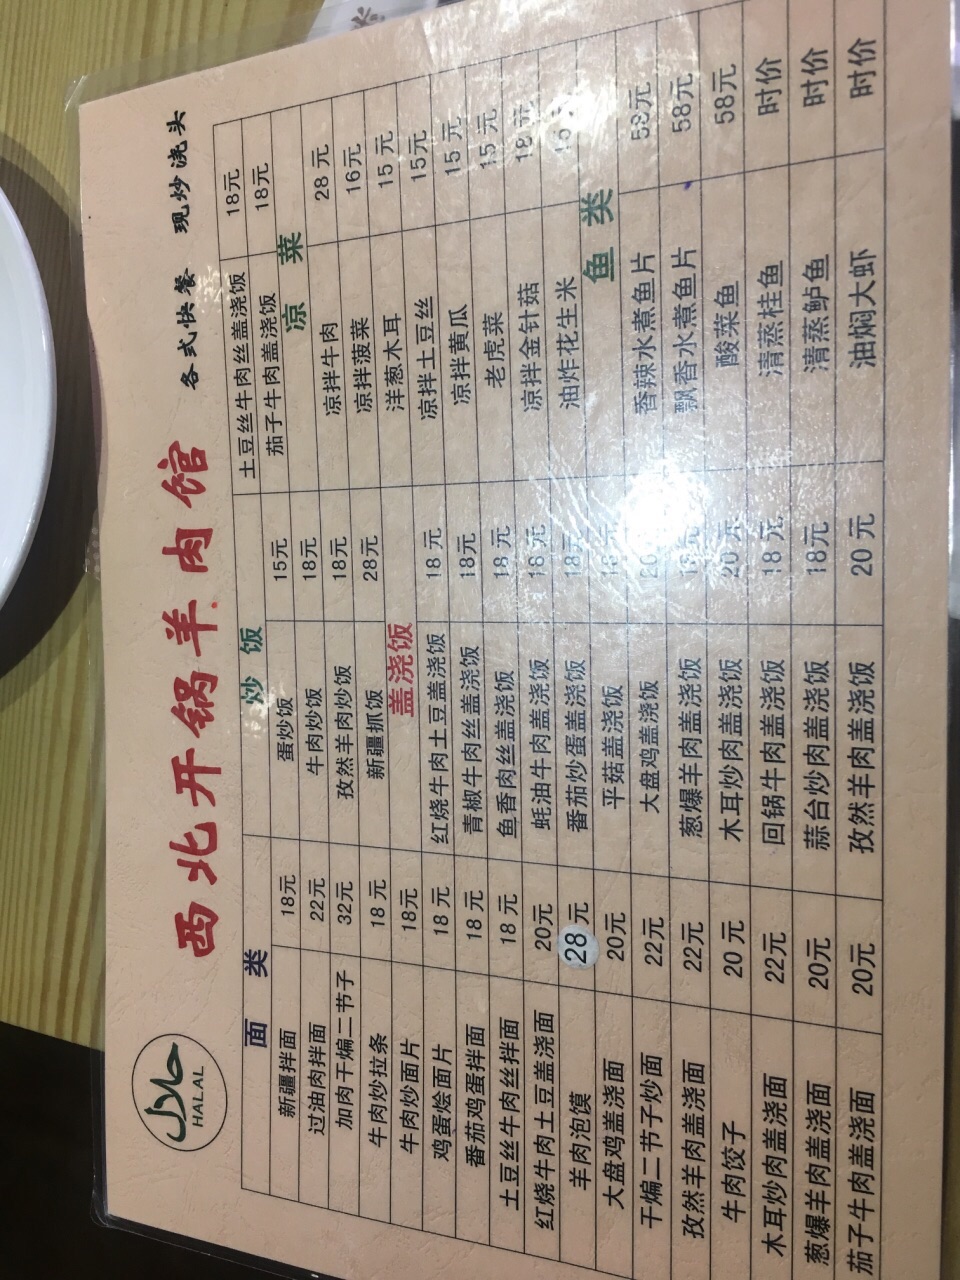 HALAL
西北开锅羊肉馆
各式快餐 现炒浇头
面类
新疆拌面 18元
过油肉拌面 22元
加肉干煸二节子 32元
牛肉炒拉条 18元
牛肉炒面片 18元
鸡蛋烩面片 18元
番茄鸡蛋拌面 18元
土豆丝牛肉丝拌面 18元
红烧牛肉土豆盖浇面 20元
羊肉泡馍 28元
大盘鸡盖浇面 20元
干煸二节子炒面 22元
孜然羊肉盖浇面 22元
牛肉饺子 20元
木耳炒肉盖浇面 22元
葱爆羊肉盖浇面 20元
茄子牛肉盖浇面 20元
炒饭
蛋炒饭 15元
牛肉炒饭 18元
孜然羊肉炒饭 18元
新疆抓饭 28元
盖浇饭
红烧牛肉土豆盖浇饭 18元
青椒牛肉丝盖浇饭 18元
鱼香肉丝盖浇饭 18元
蚝油牛肉盖浇饭 18元
番茄炒蛋盖浇饭 18元
平菇盖浇饭
大盘鸡盖浇饭
葱爆羊肉盖浇饭
木耳炒肉盖浇饭 20元
回锅牛肉盖浇饭 18元
蒜台炒肉盖浇饭 18元
孜然羊肉盖浇饭 20元
土豆丝牛肉丝盖浇饭 18元
茄子牛肉盖浇饭 18元
凉菜
凉拌牛肉 28元
凉拌菠菜 16元
洋葱木耳 15元
凉拌土豆丝 15元
凉拌黄瓜 15元
老虎菜 15元
凉拌金针菇 18元
油炸花生米
鱼类
香辣水煮鱼片 58元
飘香水煮鱼片 58元
酸菜鱼 58元
清蒸桂鱼 时价
清蒸鲈鱼 时价
油焖大虾 时价